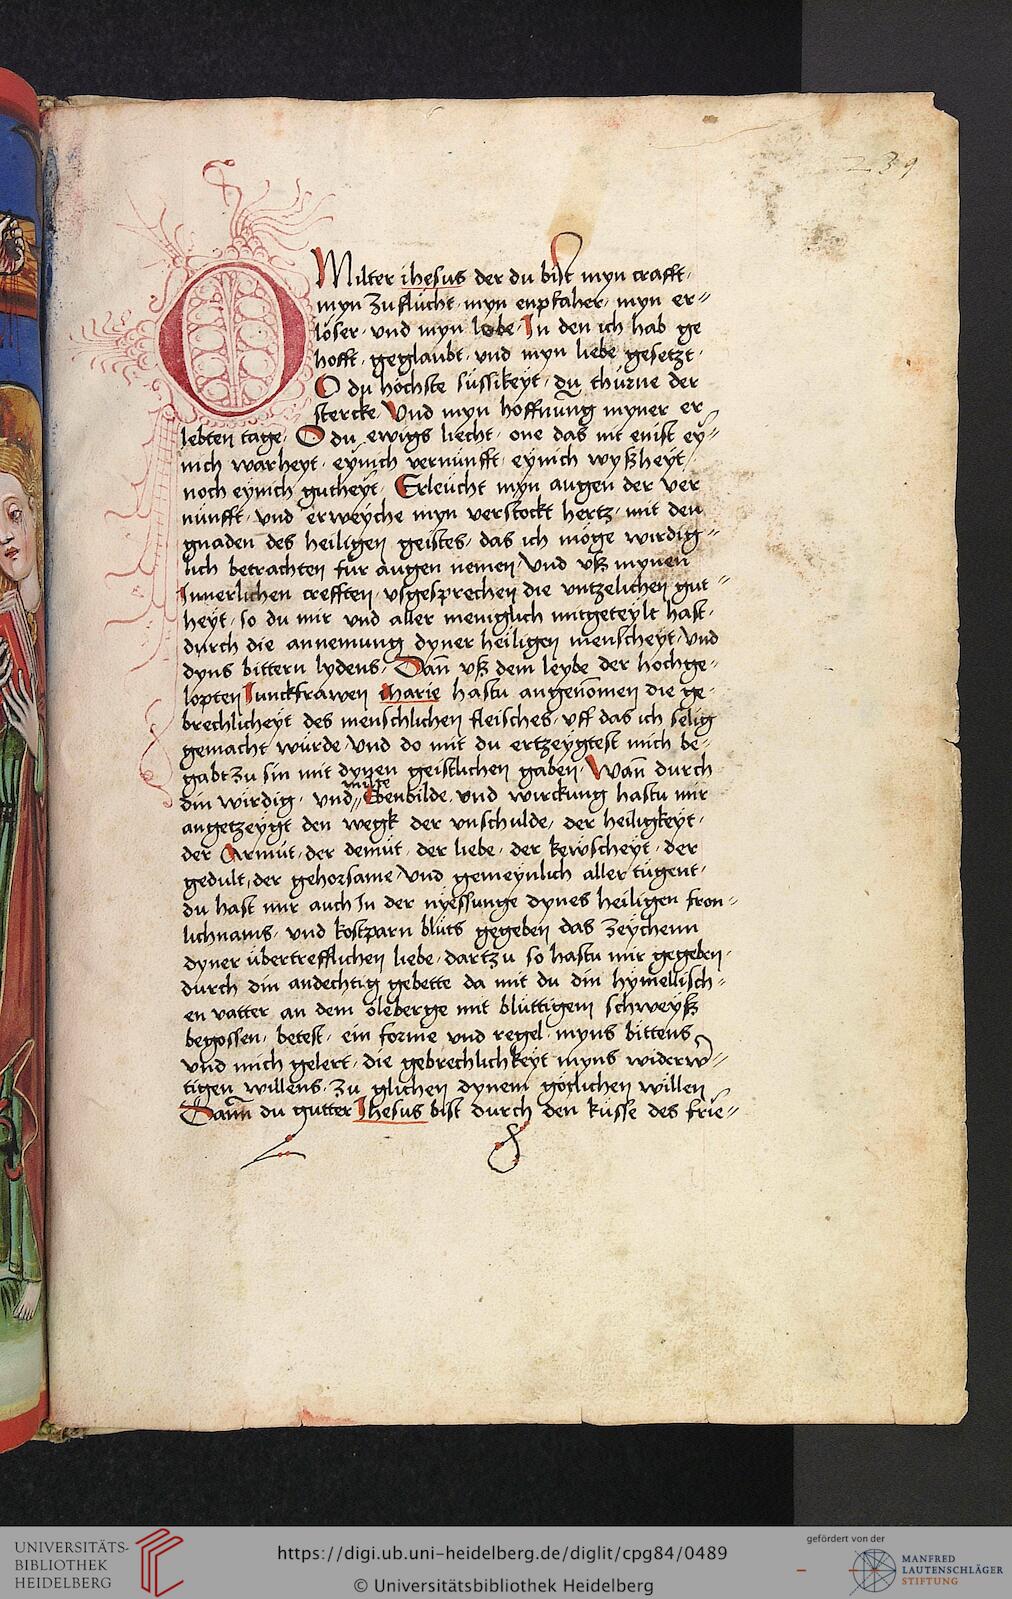 239
O Milter ihesus der du bist myn crafft ·
myn zuflücht · myn enpfaher · myn er„
löser · vnd myn lebe · In den ich hab ge
hofft · geglaubt · vnd myn liebe gesetzt ·
O du höchste süssikeyt · du thürne der
stercke · Vnd myn hoffnung myner er
lebten tage · O du ewigs liecht · one das nit enist ey„
nich warheyt · eynich vernünfft · eynich wyßheyt /
noch eynich gutheyt · Erleücht myn augen der ver
nünfft · vnd erweyche myn verstockt hertz · mit den
gnaden des heiligen geistes · das ich möge wirdig„
lich betrachten für augen nemen / vnd vß mynen
Innerlichen crefften · vsgesprechen die vntzelichen gut„
heyt · so du mir vnd aller meniglich mitgeteylt hast ·
durch die annemung dyner heiligen menscheyt / vnd
dyns bittern lydens · Dan̄ vß dem leybe der hochge„
lopten Iunckfrawen Marie hastu angenōmen die ge„
brechlicheyt des menschlichen fleisches · vff das ich selig
gemacht würde / vnd do mit du ertzeygtest mich be„
gabt zu sin mit dynen geistlichen gaben · Wan̄ durch
din wirdig · vnd„ Ebenbilde · vnd wirckung hastu mir
angetzeygt den wegk der vnschulde / der heiligkeyt ·
der Armüt · der demüt · der liebe · der kewscheyt · der
gedult · der gehorsame / vnd gemeynlich aller tügent ·
du hast mir auch In der nyessunge dynes heiligen fron„
lichnams · vnd kostparn blüts gegeben das zeychenn
dyner übertrefflichen liebe · dartzu so hastu mir gegeben ·
durch din andechtig gebette da mit du din hymellisch„
en vatter an dem öleberge mit blüttigem schweyß
begossen / betest · ein forme vnd regel · myns bittens
vnd mich gelert · die gebrechlichkeyt myns widerw„
tigen willens · zu glichen dynem götlichen willen
Dann du gutter Ihesus bist durch den küsse des frie„
UNIVERSITÄTS-
BIBLIOTHEK
HEIDELBERG
https://digi.ub.uni-heidelberg.de/diglit/cpg84/0489
© Universitätsbibliothek Heidelberg
gefördert von der
MANFRED
LAUTENSCHLÄGER
STIFTUNG